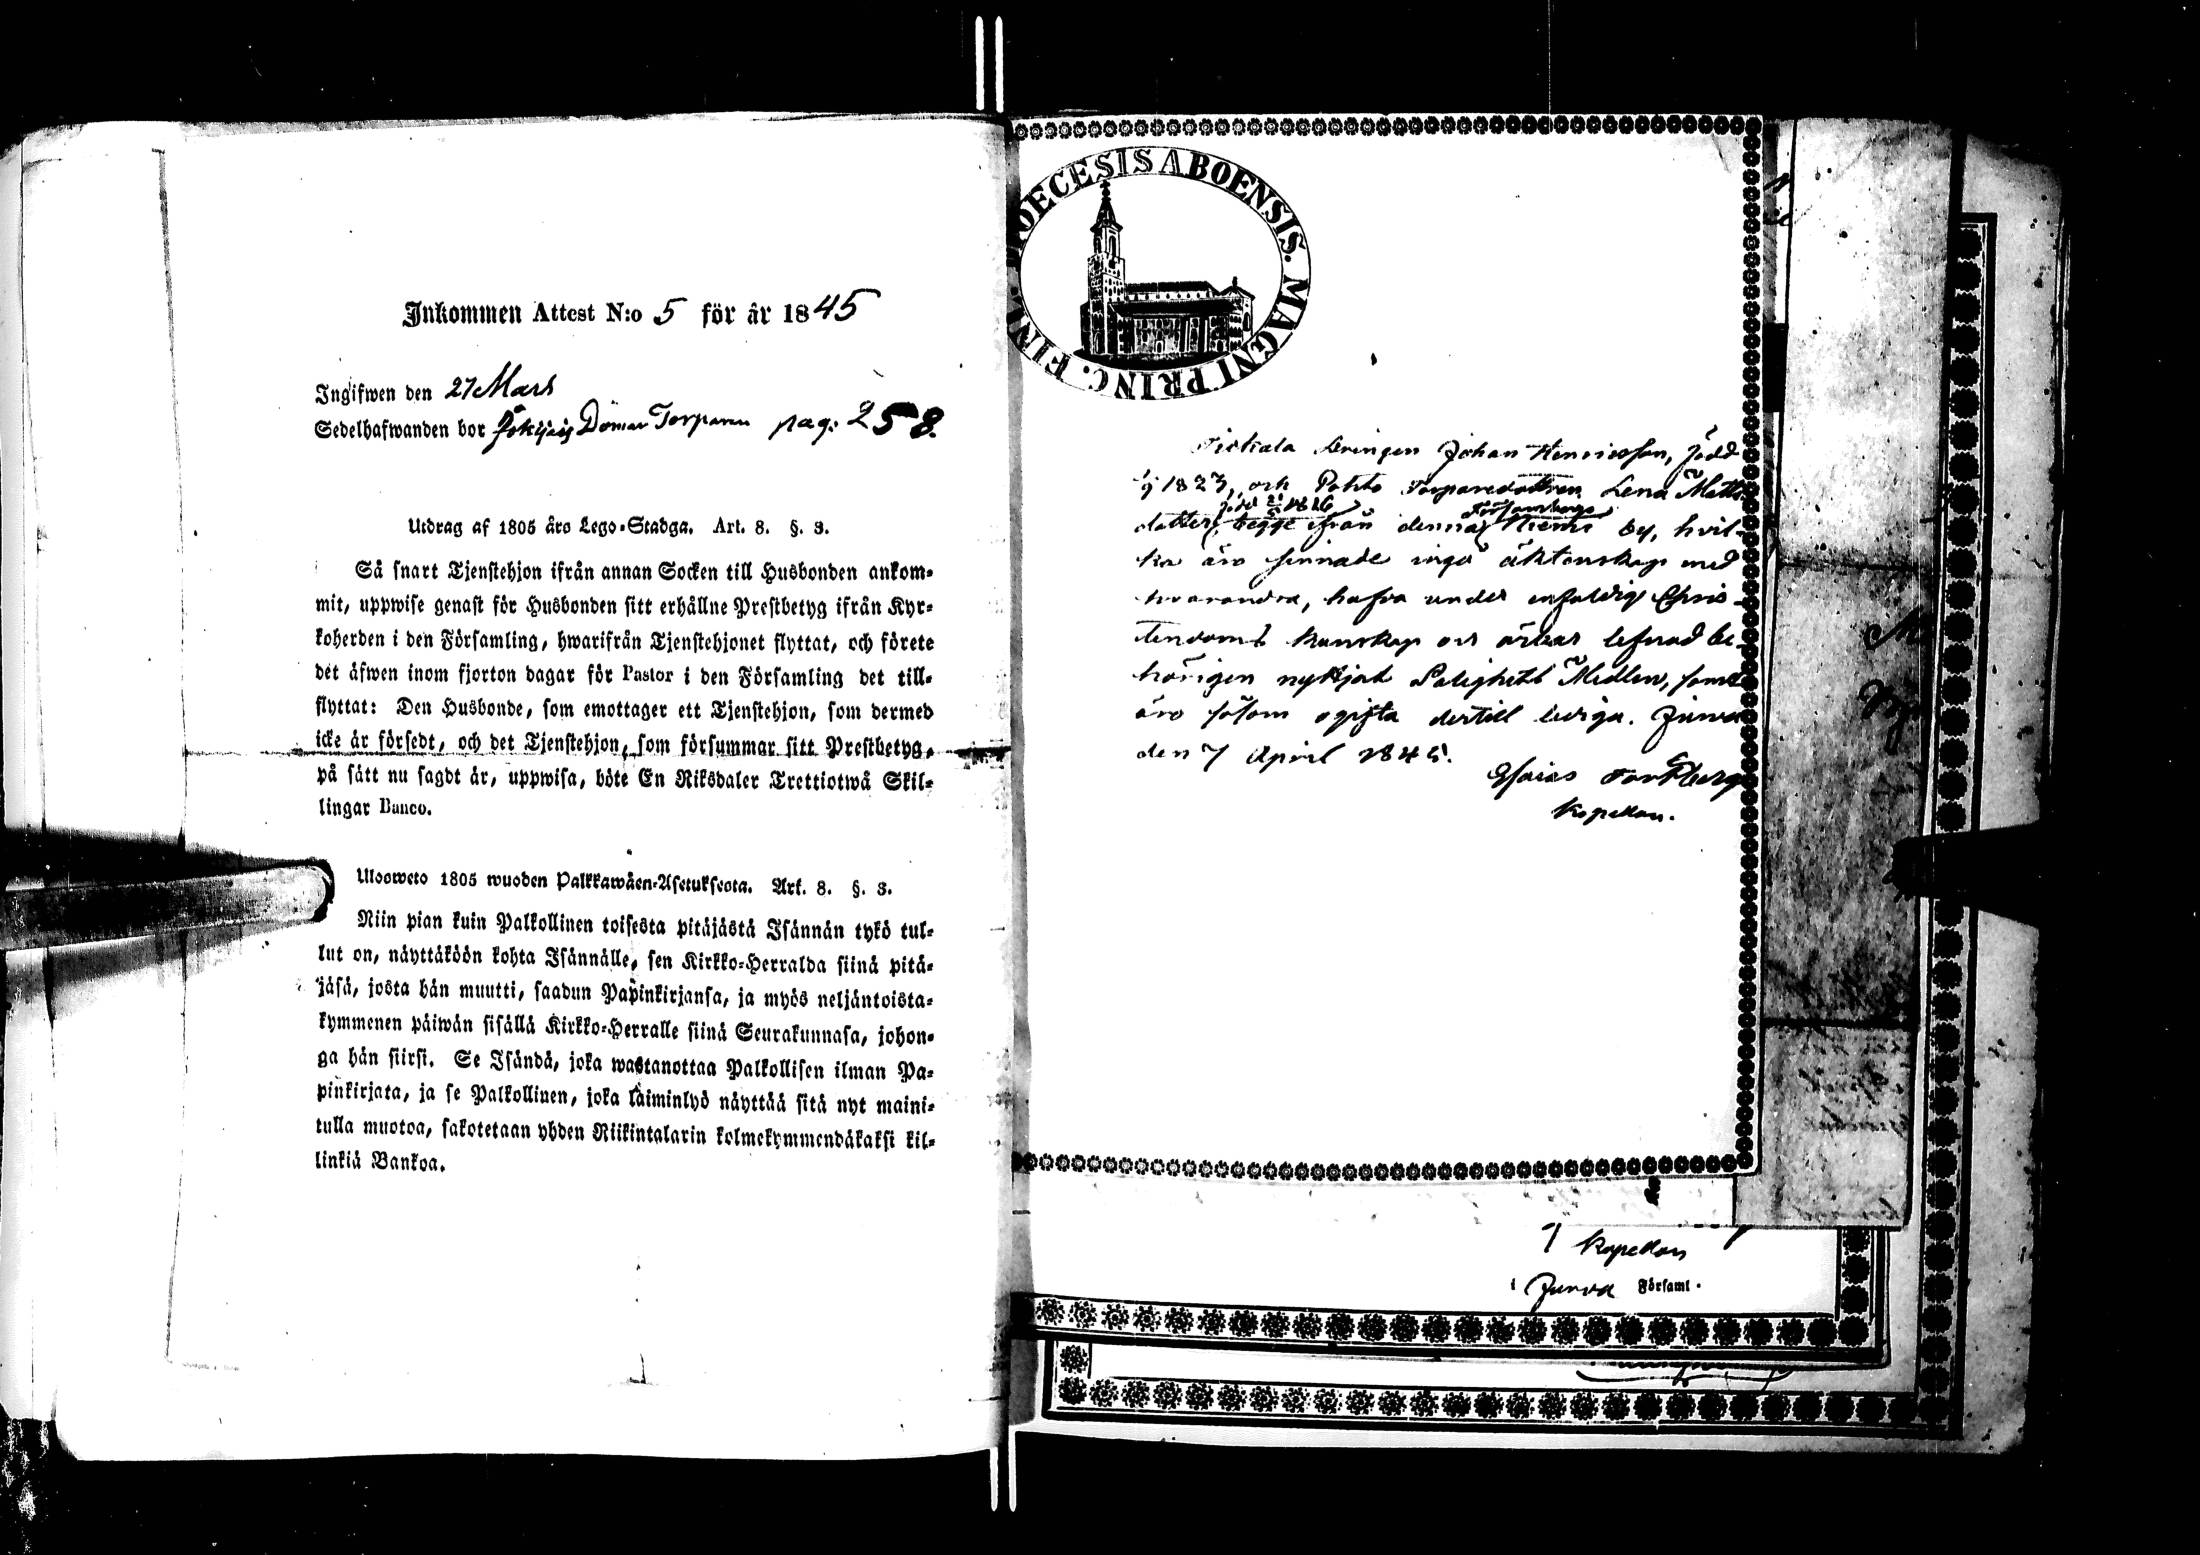 Inkommen Attest N:o 5 för år 1845
Ingifwen den 27 Mars
Sedelhafwanden bor Torparen pag: 258.
Utdrag af 1805 års Lego-Stadga. Art. 8. §. 3.
Så snart Tjenstehjon ifrån annan Socken till Husbonden ankom-
mit, uppwise genast för Husbonden sitt erhållne Prestbetyg ifrån Kyr-
koherden i den Församling, hwarifrån Tjenstehjonet flyttat, och förete
det äfwen inom fjorton dagar för Pastor i den Församling det till-
flyttat: Den Husbonde, som emottager ett Tjenstehjon, som dermed
icke är försedt, och det Tjenstehjon, som försummar sitt Prestbetyg,
på sätt nu sagdt är, uppwisa, böte En Riksdaler Trettiotwå Skil-
lingar Banco.
Ulosweto 1805 wuoden Palkkawäen-Asetuksesta. Art. 8. §. 3.
Niin pian kuin Palkollinen toisesta pitäjästä Isännän tykö tul-
lut on, näyttäköön kohta Isännälle, sen Kirkko-Herralda siinä pitä-
jäsä, josta hän muutti, saadun Papinkirjansa, ja myös neljäntoista-
kymmenen päiwän sisällä Kirkko-Herralle siinä Seurakunnasa, johon-
ga hän siirsi. Se Isändä, joka wastanottaa Palkollisen ilman Pa-
pinkirjata, ja se Palkollinen, joka laiminlyö näyttää sitä nyt maini-
tulla muotoa, sakotetaan yhden Riikintalarin kolmekymmendäkaksi kil-
linkiä Bankoa.
DIOECESIS ABOENSIS. MAGNI PRINC. FINL.
Drängen Johan Henricsson, född
1823, och Pohto Torparedottren Lena Matts
dotter, begge från denna Församlings Niemi by, hvil-
ka äro sinnade ingå äktenskap med
hvarandra, hafva under enfaldig Chris-
tendoms kunskap och ärbar lefnad be-
hörigen nyttjat Salighets Medlen, samt
äro såsom ogifta dertill lediga. Jurva
den 7 April 1845.
Esaias
Kapellan.
Kapellan
i Jurva Församl.